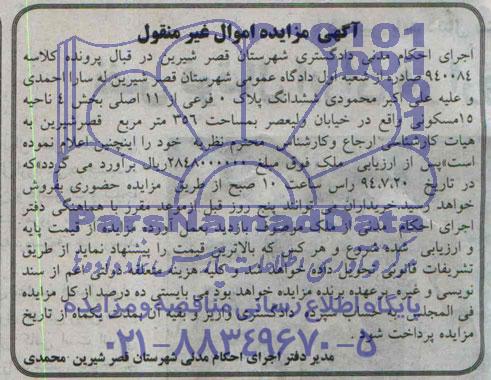 آگهی مزایده اموال غیر منقول
اجرای احکام مدنی دادگستری شهرستان قصر شیرین در قبال پرونده کلاسه
۹۴۰۰۸۴ صادره از شعبه اول دادگاه عمومی شهرستان قصر شیرین له سارا احمدی
و علیه علی اکبر محمودی ششدانگ پلاک ۰ فرعی از ۱۱ اصلی بخش ۴ ناحیه
۱۵مسکونی واقع در خیابان ولیعصر بمساحت ۳۵۶ متر مربع قصرشیرین به
هیات کارشناسی ارجاع وکارشناس محترم نظریه خود را اینچنین اعلام نموده
است»پس از ارزیابی ملک فوق مبلغ ۲۸۴۸۰۰۰۰۰۰ریال برآورد می گردد»که
در تاریخ ۹۴.۷.۲۰ راس ساعت ۱۰ صبح از طریق مزایده حضوری بفروش
خواهد رسید.خریداران می توانند پنج روز قبل ازموعد مقرر با هماهنگی دفتر
اجرای احکام مدنی از ملک موصوف بازدید بعمل آورده مزایده از قیمت پایه
و ارزیابی شده شروع و هر کس که بالاترین قیمت را پیشنهاد نماید از طریق
تشریفات قانونی تحویل داده خواهد شد و کلیه هزینه متعلقه دولتی اعم از سند
نویسی و غیره بر عهده برنده مزایده خواهد بود.می بایستی ده درصد از کل مزایده
فی المجلس به حساب سپرده دادگستری واریز و بقیه آن بمدت یکماه از تاریخ
مزایده پرداخت شود.
مدیر دفتر اجرای احکام مدنی شهرستان قصر شیرین -محمدی
ParsNamadData
پایگاه اطلاع رسانی مناقصه و مزایده
۰۲۱-۸۸۳۴۹۶۷۰-۵